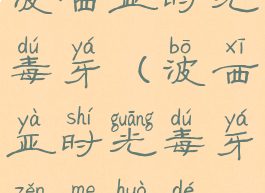 dú yá bō xī
毒牙(波西
yà shí guāng dú yá
亚时光毒牙
zěn me huò dé